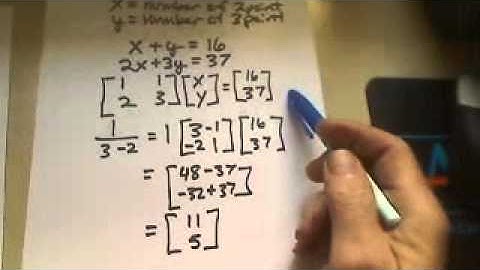 x = number of 2point
y = number of 3point
x + y = 16
2x+3y = 37
[1 1
2 3] [x
y] = [16
37]
1/(3-2) = 1 [3 -1
-2 1] [16
37]
= [48-37
-32+37]
= [11
5]